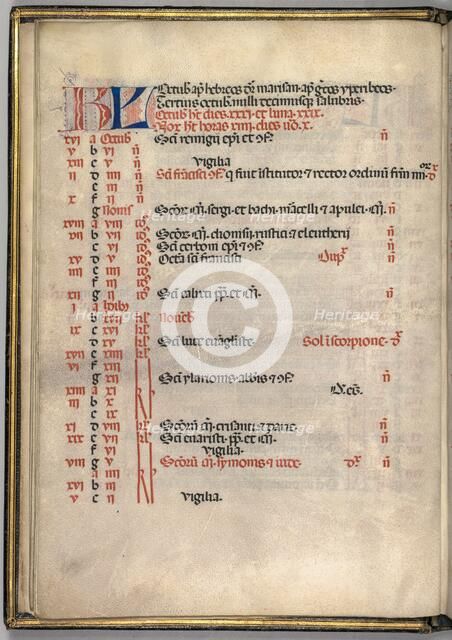 KL Octub ap hebreos dr marisan ap grecos yperbeos
Tertius octub nulli decimusq salubris
Octub ht dies xxxi et luna xxix
Nox ht horas xiiii dies uo x
xvi a Octub Sci remigii epi et 9f n
v b vi n
xiii c v n vigilia
ii d iiii n Sci francisci 9f q fuit istitutor et rector ordinu frm mior
e iii n
x f ii n
g Nonis Scor m sergi et bachi marcelli et apulei m n
xviii a viii id
vii b vii id Scor m dionisii rustici et eleutherii n
c vi Sci cerboni epi et 9f
xv d v id Octa sci francisci Dup
iiii e iiii id
f iii id
xii g ii id Sci calixti pp et m n
i a Idib
b xvii Nouebr
ix c xvi
d xv Sci luce euagliste Sol i scorpione
xvii e xiiii
vi f xiii
g xii Sci ylarionis abbis et 9f n
xiiii a xi
iii b x
c ix
xi d viii Scoru m crisanti et darie n
xix e vii Sci euaristi pp et m n
f vi vigilia
viii g v Scoru m symonis et iude n
a iiii
xvi b iii
v c ii vigilia
Heritage
Images